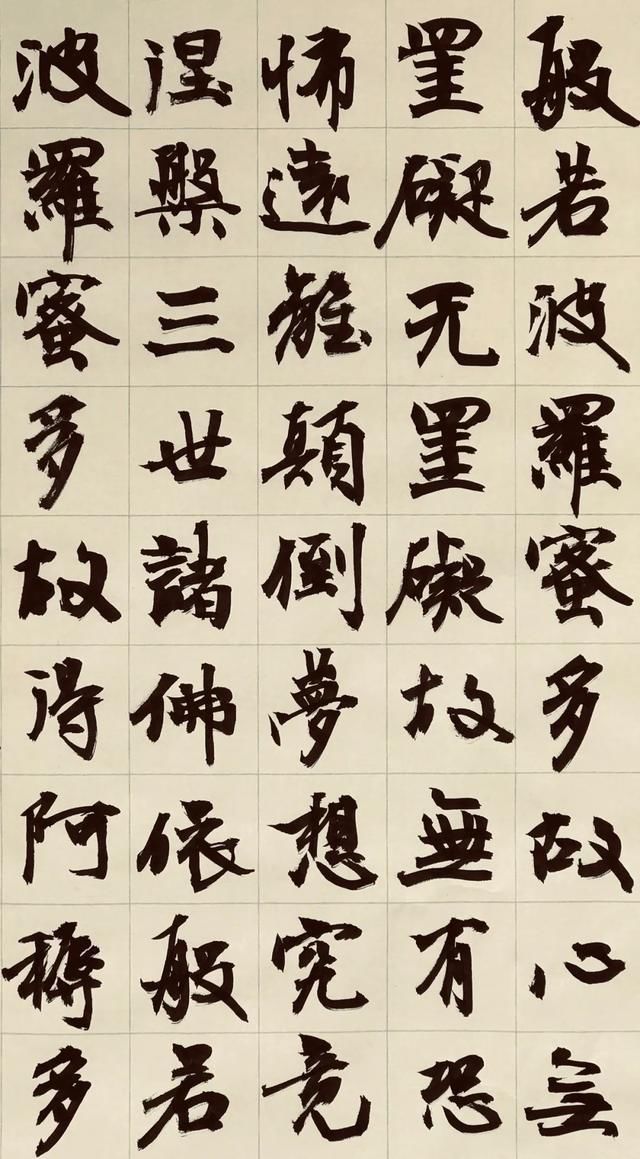 般若波羅蜜多故心無
罣礙无罣礙故無有恐
怖遠離顛倒夢想究竟
涅槃三世諸佛依般若
波羅蜜多故得阿耨多